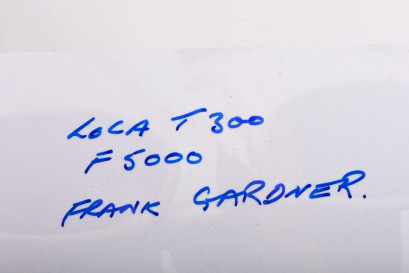 LOLA T300
F5000
FRANK GARDNER.